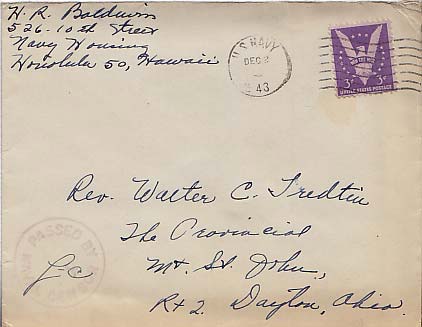 H. R. Baldwin
526-10th Street
Navy Housing
Honolulu 50, Hawaii
U.S. NAVY
DEC 2
43
WIN THE WAR
3¢ 3¢
UNITED STATES POSTAGE
Rev. Walter C. Tredtin
The Provincial
Mt. St. John,
Rt 2. Dayton, Ohio.
PASSED BY
CENSOR